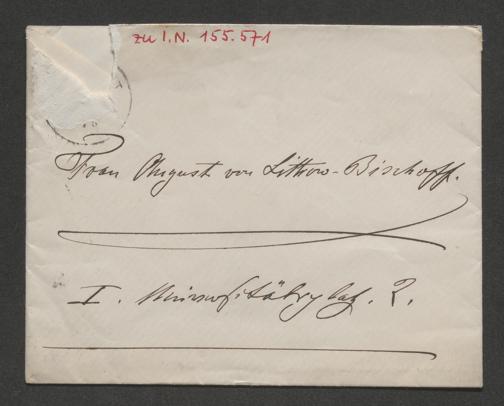 zu I.N. 155.571
Frau August von Littrow-Bischoff.
I. Universitätsplatz. 2.